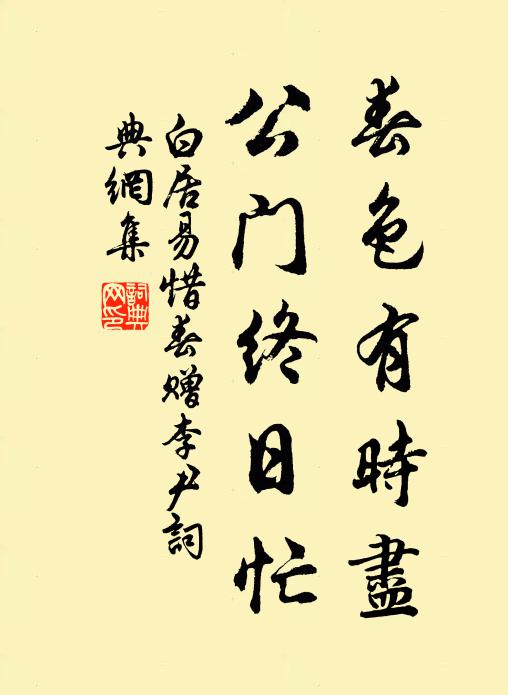 春色有時盡
公門終日忙
白居易惜春赠李尹詞
典網集
詞典
网印